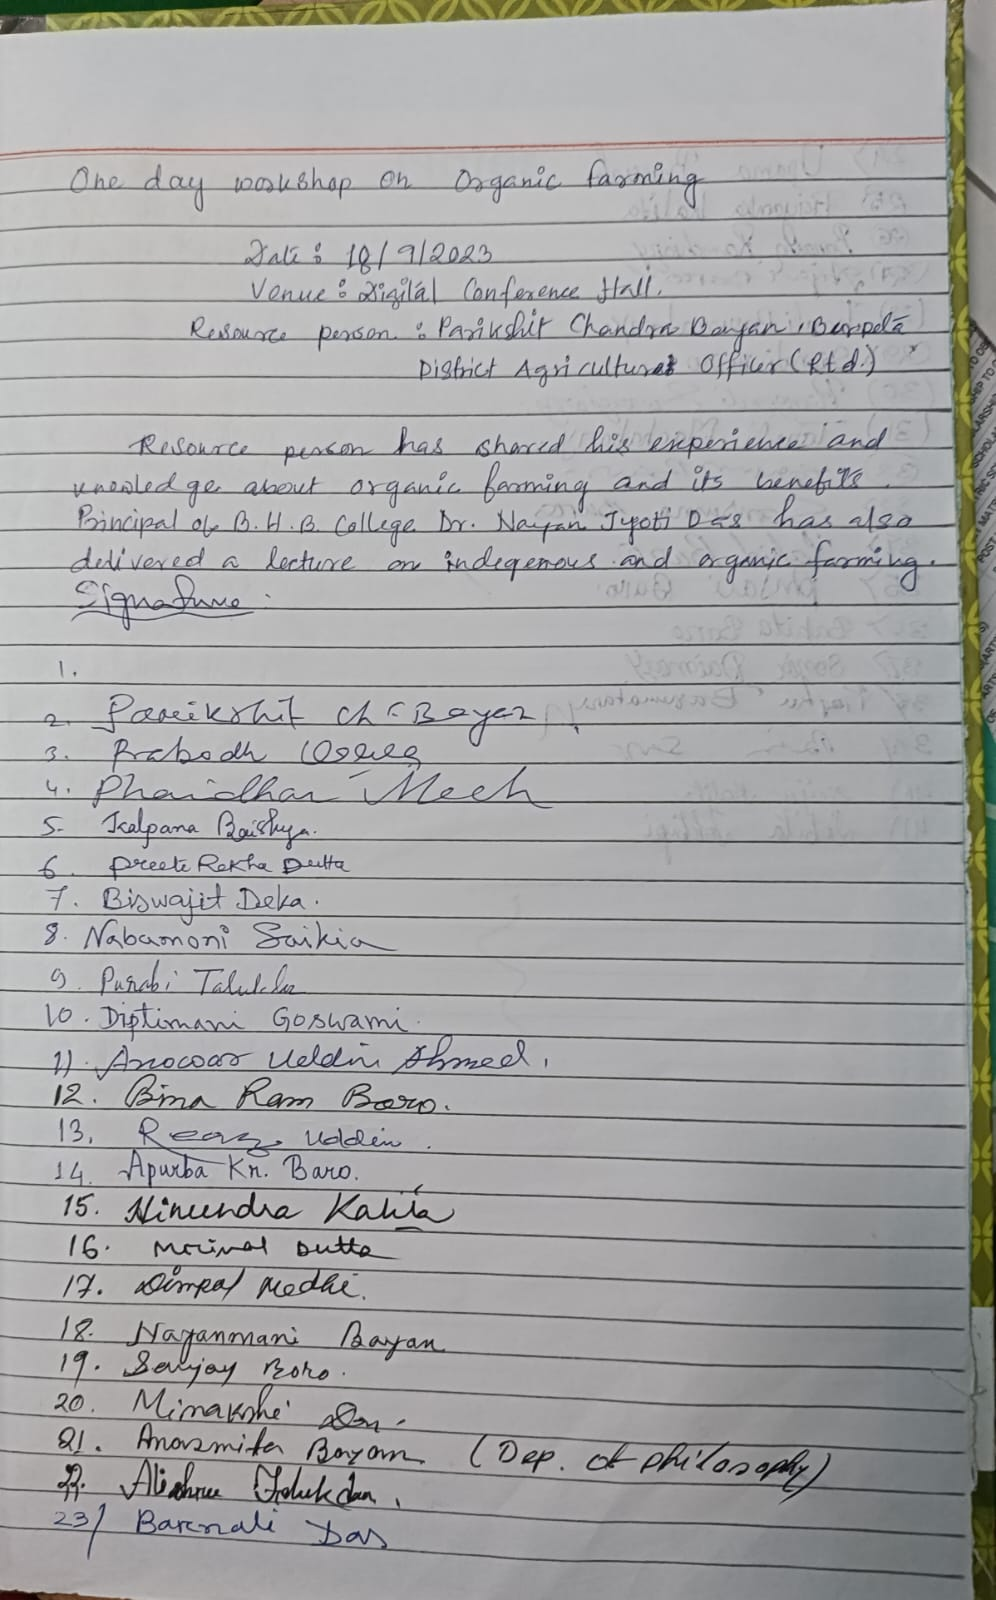 One day workshop on Organic farming
Date : 18/9/2023
Venue : Digital Conference Hall.
Resource person : Parikshit Chandra Bayan, Barpeta
District Agricultural Officer (Rtd.)
Resource person has shared his experience and
knowledge about organic farming and its benefits.
Principal of B.H.B. College Dr. Nayan Jyoti Das has also
delivered a lecture on indegenous and organic farming.
Signature :
1.
2. Parikshit Ch. Bayan
3. Prabodh
4. Phanidhar Mech
5. Kalpana Baishya.
6. Preete Rekha Dutta
7. Biswajit Deka.
8. Nabamoni Saikia
9. Purabi Talukdar
10. Diptimani Goswami.
11. Anowar Uddin Ahmed.
12. Bina Ram Boro.
13. Reaz Uddin.
14. Apurba Kr. Baro.
15. Kalita
16. Mrinal Dutta
17. Dimpal Medhi.
18. Nayanmani Bayan
19. Sanjay Boro.
20. Minakshi
21. Anasmita Bayan (Dep. of philosophy)
22. Talukdar.
23/ Barnali Das